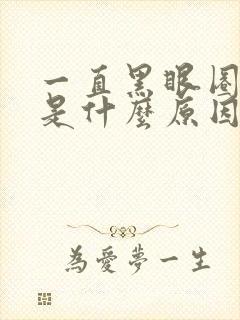 一直黑眼圈
是什麼原因
為愛夢一生